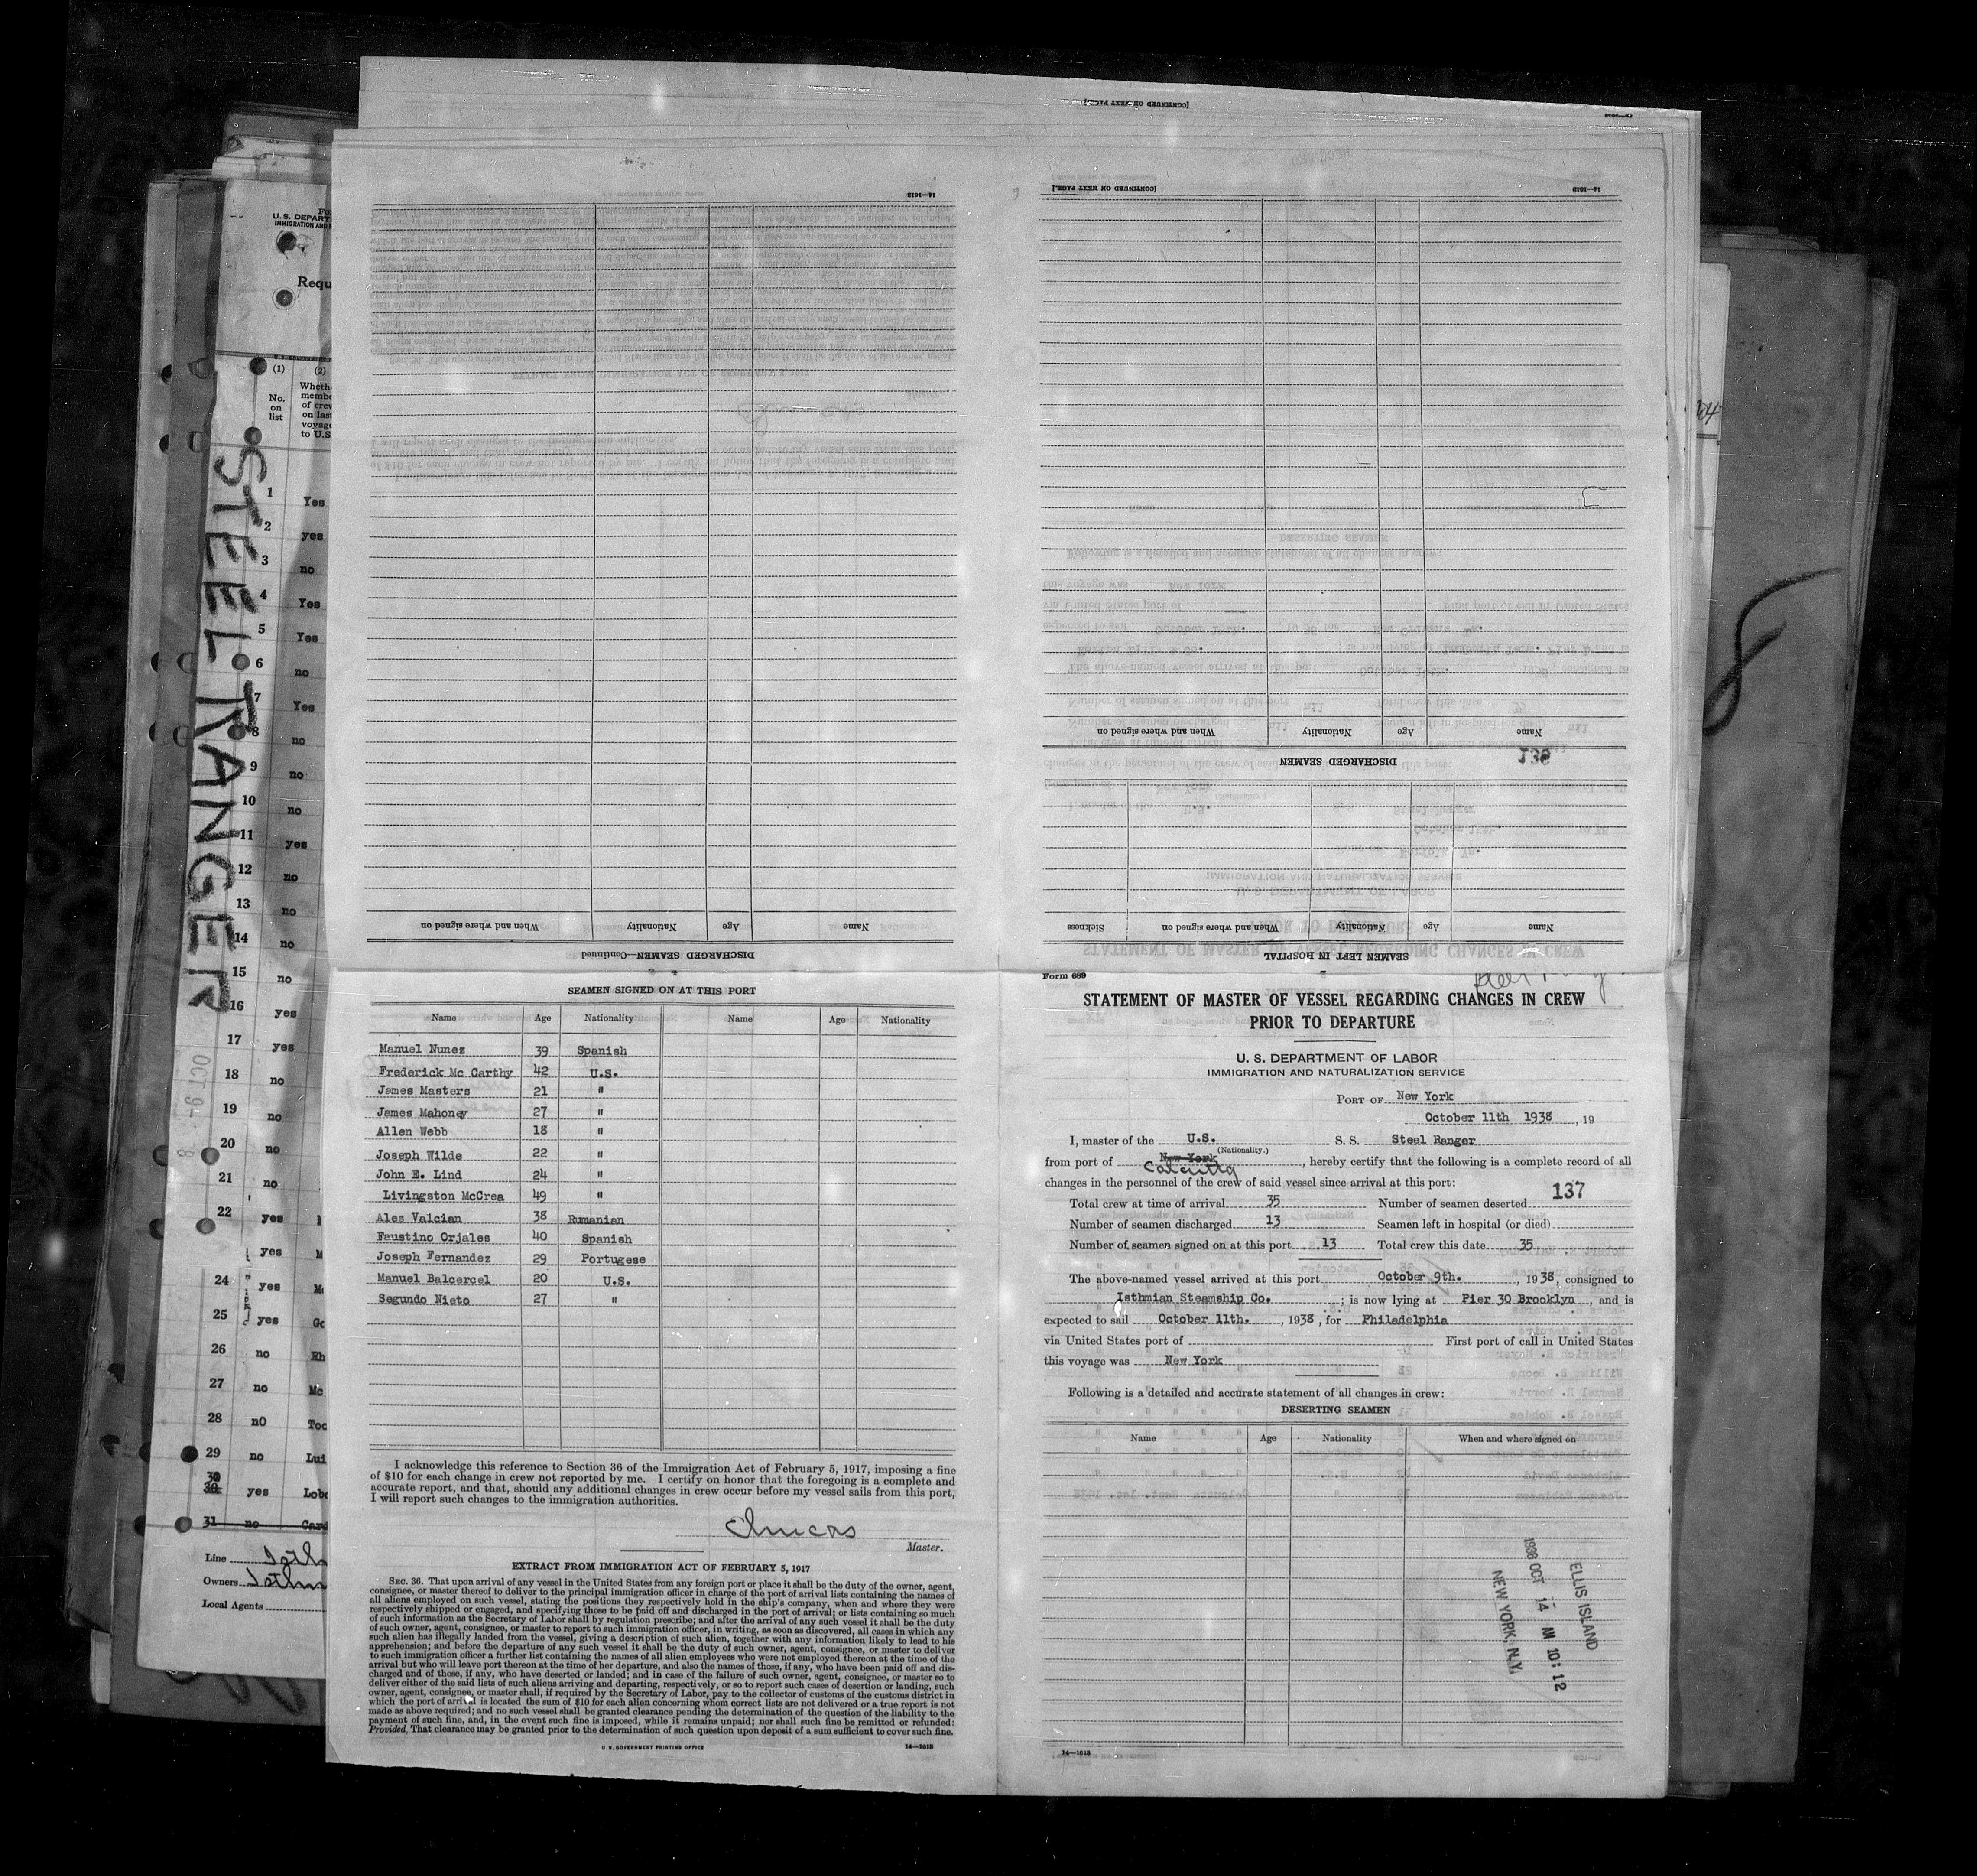 STEEL RANGER
U. S. DEPART
IMMIGRATION AND
Requ
(1) (2)
No. on list
Wheth
membe
of crew
on last
voyage
to U.S.
1 Yes
2 yes
3 no
4 Yes
5 Yes
6 no
7 Yes
8 no
9 no
10 no
11 yes
12 no
13 no
14 no
15 no
16 yes
17 yes
18 no
19 no
20 no
21 no
22 yes
yes M
24 yes M
25 yes Go
26 no Rh
27 no Mc
28 nO Too
29 no Lui
30 yes Lob
31 no Card
Line
Owners
Local Agents
[CONTINUED ON NEXT PAGE.]
14—1613
[CONTINUED ON NEXT PAGE.]
14—1613
DISCHARGED SEAMEN—Continued
Name Age Nationality When and where signed on
SEAMEN LEFT IN HOSPITAL
Name Age Nationality When and where signed on Sickness
DISCHARGED SEAMEN
Name Age Nationality When and where signed on
136
SEAMEN SIGNED ON AT THIS PORT
Name Age Nationality Name Age Nationality
Manuel Nunez 39 Spanish
Frederick Mc Carthy 42 U.S.
James Masters 21 "
James Mahoney 27 "
Allen Webb 18 "
Joseph Wilde 22 "
John E. Lind 24 "
Livingston McCrea 49 "
Ales Valcian 38 Rumanian
Faustino Orjales 40 Spanish
Joseph Fernandez 29 Portugese
Manuel Balcercel 20 U.S.
Segundo Nieto 27 "
I acknowledge this reference to Section 36 of the Immigration Act of February 5, 1917, imposing a fine
of $10 for each change in crew not reported by me. I certify on honor that the foregoing is a complete and
accurate report, and that, should any additional changes in crew occur before my vessel sails from this port,
I will report such changes to the immigration authorities.
Master.
EXTRACT FROM IMMIGRATION ACT OF FEBRUARY 5, 1917
SEC. 36. That upon arrival of any vessel in the United States from any foreign port or place it shall be the duty of the owner, agent,
consignee, or master thereof to deliver to the principal immigration officer in charge of the port of arrival lists containing the names of
all aliens employed on such vessel, stating the positions they respectively hold in the ship's company, when and where they were
respectively shipped or engaged, and specifying those to be paid off and discharged in the port of arrival; or lists containing so much
of such information as the Secretary of Labor shall by regulation prescribe; and after the arrival of any such vessel it shall be the duty
of such owner, agent, consignee, or master to report to such immigration officer, in writing, as soon as discovered, all cases in which any
such alien has illegally landed from the vessel, giving a description of such alien, together with any information likely to lead to his
apprehension; and before the departure of any such vessel it shall be the duty of such owner, agent, consignee, or master to deliver
to such immigration officer a further list containing the names of all alien employees who were not employed thereon at the time of the
arrival but who will leave port thereon at the time of her departure, and also the names of those, if any, who have been paid off and dis-
charged and of those, if any, who have deserted or landed; and in case of the failure of such owner, agent, consignee, or master so to
deliver either of the said lists of such aliens arriving and departing, respectively, or so to report such cases of desertion or landing, such
owner, agent, consignee, or master shall, if required by the Secretary of Labor, pay to the collector of customs of the customs district in
which the port of arrival is located the sum of $10 for each alien concerning whom correct lists are not delivered or a true report is not
made as above required; and no such vessel shall be granted clearance pending the determination of the question of the liability to the
payment of such fine, and, in the event such fine is imposed, while it remains unpaid; nor shall such fine be remitted or refunded:
Provided, That clearance may be granted prior to the determination of such question upon deposit of a sum sufficient to cover such fine.
U. S. GOVERNMENT PRINTING OFFICE 14—1613
Form 689
STATEMENT OF MASTER OF VESSEL REGARDING CHANGES IN CREW
PRIOR TO DEPARTURE
U. S. DEPARTMENT OF LABOR
IMMIGRATION AND NATURALIZATION SERVICE
PORT OF New York
October 11th 1938, 19
I, master of the U.S. S. S. Steel Ranger
(Nationality.)
from port of New York Calcutta, hereby certify that the following is a complete record of all
changes in the personnel of the crew of said vessel since arrival at this port:
137
Total crew at time of arrival 35 Number of seamen deserted
Number of seamen discharged 13 Seamen left in hospital (or died)
Number of seamen signed on at this port 13 Total crew this date 35
The above-named vessel arrived at this port October 9th., 1938, consigned to
Isthmian Steamship Co.; is now lying at Pier 30 Brooklyn, and is
expected to sail October 11th., 1938, for Philadelphia
via United States port of First port of call in United States
this voyage was New York
Following is a detailed and accurate statement of all changes in crew:
DESERTING SEAMEN
Name Age Nationality When and where signed on
ELLIS ISLAND
1938 OCT 14 AM 10:12
NEW YORK, N.Y.
14—1613